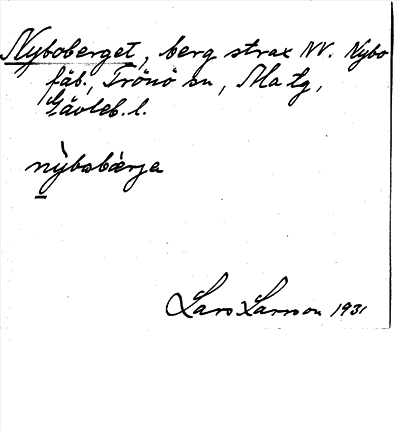 Nyboberget, berg strax NV. Nybo
fäb., Trönö sn, Ma tg,
Gävleb. l.
nỳbobærja
Lars Larsson 1931